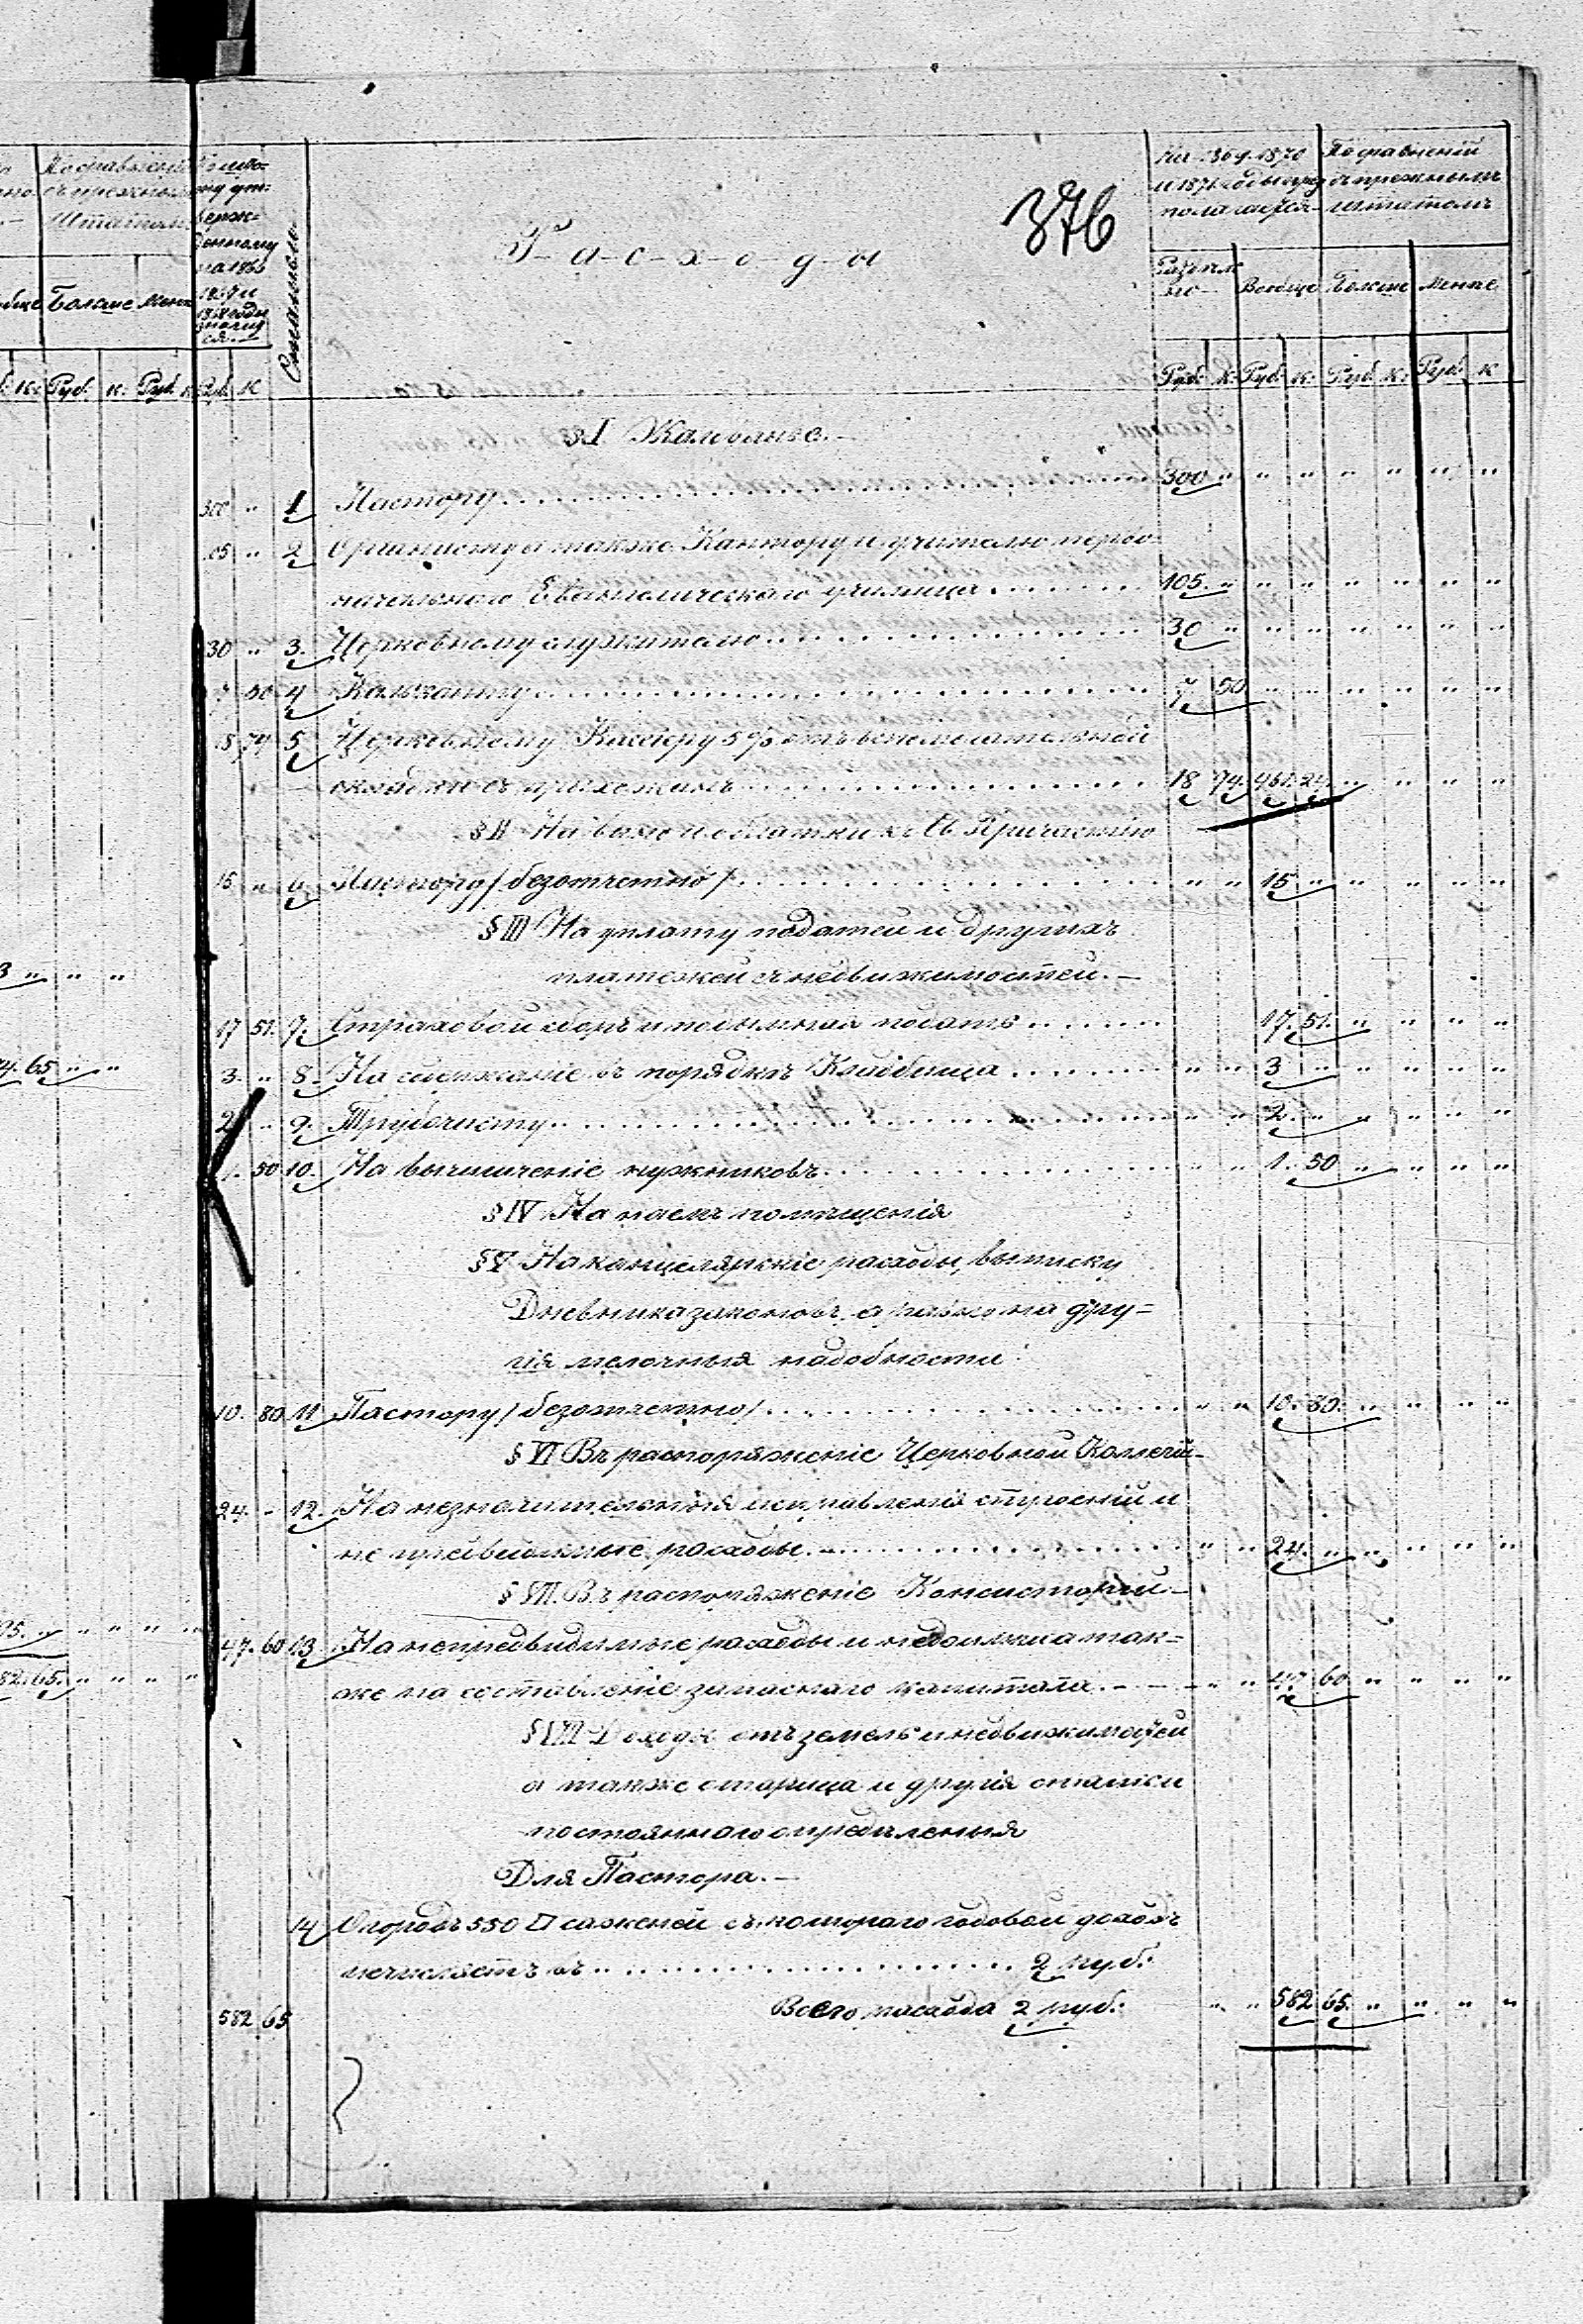 По сравненію
съ прежнимъ
Штатомъ
Больше Менѣе
Руб. к. Руб. к.
3 " " "
65 " "
05. " " " " "
82. 65. " " " "
денному
на 1866
1867 и
1868 годы
Руб. к
Статьи
Р-а-с-х-о-д-ы
376
На 1869. 1870
и 1871 годы пред
полагается
По сравненій
съ прежнымъ
штатомъ
Вообще Больше Менѣе
Руб. к. Руб. к. Руб. к. Руб. к
§ I Жалованье.–
300 " 1 Пастору . . . . 300 " " " " " " "
105 " 2 Органисту а также Кантору и учителю перво-
начальнаго Евангелическаго училища . . . . 105. " " " " " " "
30 " 3. Церковному служителю . . . . 30 " " " " " " "
7 50 4 Калканту . . . . 7 50 " " " " " "
18 74 5 Церковному Кассиру 5% отъ вспомогательной
складки съ прихожанъ . . . . 18 74. 461. 24. " " " "
§ II На вино и облатки къ Св. Причастію
15 " 6 Пастору / безотчетно / . . . . " " 15 " " " " "
§ III На уплату податей и другихъ
платежей съ недвижимостей.–
17 51. 7. Страховой сборъ и подымная подать . . . . 17. 51. " " " "
3. " 8. На содержаніе въ порядкѣ Кладбища . . . . " " 3 " " " " "
2 " 9. Трубочисту . . . . " " 2. " " " " "
1. 50 10. На вычищеніе нужниковъ . . . . " " 1. 50 " " " "
§ IV На наемъ помѣщенія
§ V На канцелярскіе расходы, выписку
Дневника законовъ, а также на дру=
гія мелочныя надобности:
10. 80 11 Пастору / безотчетно / . . . . " " 10. 80. " " " "
§ VI Въ распоряженіе Церковной Коллегіи–
24. – 12. На незначительныя исправленія строеній и
не предвидимые расходы. . . . . " " 24. " " " " "
§ VII. Въ распоряженіе Консисторіи–
47. 60 13. На непредвидимые расходы и недоимки а так=
же на составленіе запаснаго капитала. – – – " " 47 60 " " " "
§ VIII Доходы отъ земель и недвижимостей
а также и другія
постояннаго опредѣленыя
Для Пастора.–
14 Огородъ 550 □ саженей съ котораго годовой доходъ
исчисляетъ въ . . . . 2 руб.
582 65 Всего расхода 2 руб. " " 582 65. " " " "